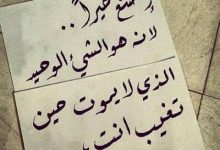 إصنع خيراً..
لأنه هو الشيء الوحيد
الذي لا يموت حين
تغيب أنت